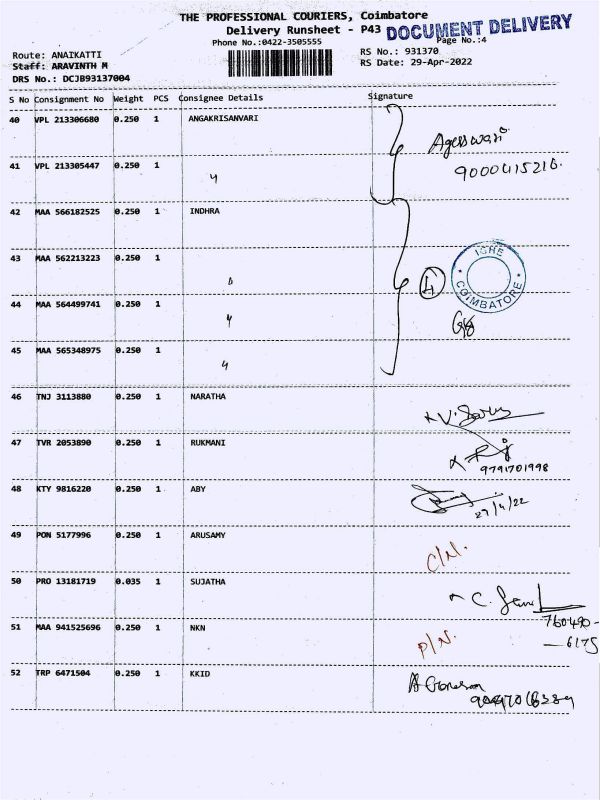 THE PROFESSIONAL COURIERS, Coimbatore
Delivery Runsheet - P43 DOCUMENT DELIVERY
Phone No.:0422-3505555 Page No.:4
Route: ANAIKATTI RS No.: 931370
Staff: ARAVINTH M RS Date: 29-Apr-2022
DRS No.: DCJB93137004
S No Consignment No Weight PCS Consignee Details Signature
40 VPL 213306680 0.250 1 ANGAKRISANVARI
41 VPL 213305447 0.250 1
42 MAA 566182525 0.250 1 INDHRA
43 MAA 562213223 0.250 1
IGHE
COIMBATORE
44 MAA 564499741 0.250 1
45 MAA 565348975 0.250 1
46 TNJ 3113880 0.250 1 NARATHA
47 TVR 2053890 0.250 1 RUKMANI
9791701998
48 KTY 9816220 0.250 1 ABY
27/4/22
49 PON 5177996 0.250 1 ARUSAMY
C/N.
50 PRO 13181719 0.035 1 SUJATHA
760490-
51 MAA 941525696 0.250 1 NKN
P/N. -6175
52 TRP 6471504 0.250 1 KKID